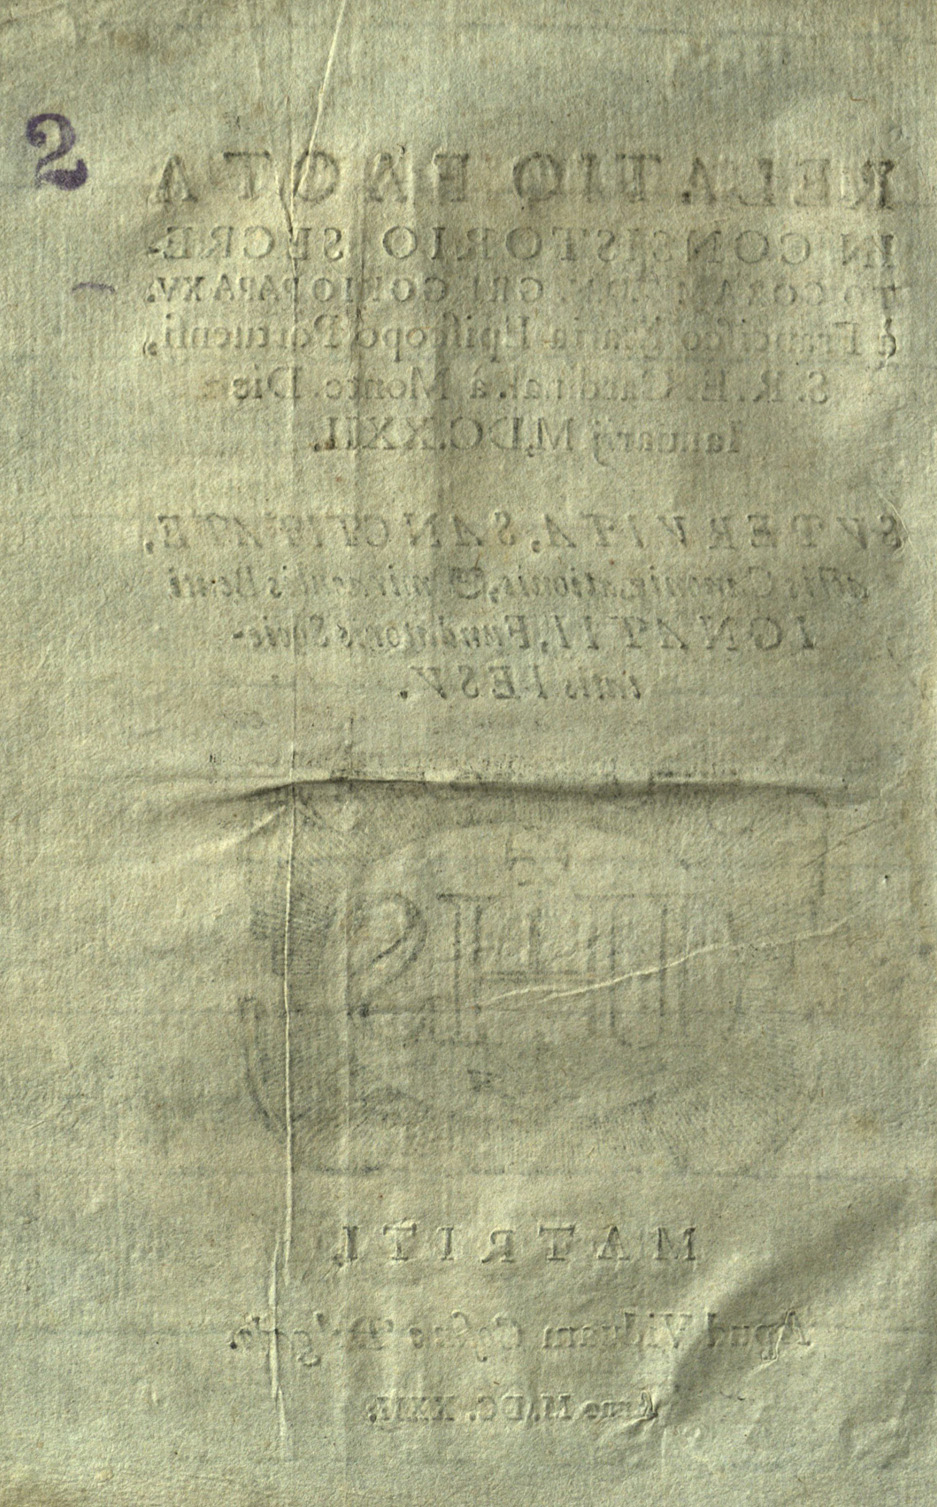 2
RELATIO FACTA
IN CONSISTORIO SECRE-
TO CORAM S.D.N. GREGORIO PAPA XV.
à Francisco Maria Episcopo Portuensi,
S. R. E. Cardinal. à Monte. Die
Ianuarij M.DC.XXII.
SVPER VITA, SANCTITATE,
actis Canonizationis, & miraculis Beati
IGNATII, Fundatoris Socie-
tatis IESV.
IHS
MATRITI,
Apud Viduam Cosme Delgado.
Anno M.DC.XXII.